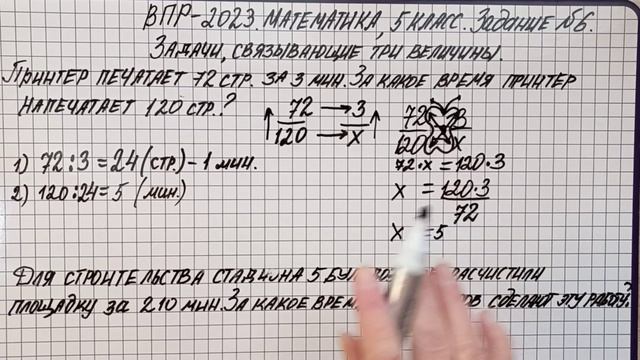 ВПР-2023. МАТЕМАТИКА, 5 КЛАСС. ЗАДАНИЕ №6.
ЗАДАЧИ, СВЯЗЫВАЮЩИЕ ТРИ ВЕЛИЧИНЫ.
ПРИНТЕР ПЕЧАТАЕТ 72 СТР. ЗА 3 МИН. ЗА КАКОЕ ВРЕМЯ ПРИНТЕР
НАПЕЧАТАЕТ 120 СТР.?
↑ 72 → 3 ↑
120 → X
72 3
120 X
1) 72:3=24(СТР.)-1 МИН.
72·X=120·3
2) 120:24=5 (МИН.)
X = 120·3
72
X =5
ДЛЯ СТРОИТЕЛЬСТВА СТАДИОНА 5 РАСЧИСТИЛИ
ПЛОЩАДКУ ЗА 210 МИН. ЗА КАКОЕ СДЕЛАЮТ ЭТУ РАБОТУ?